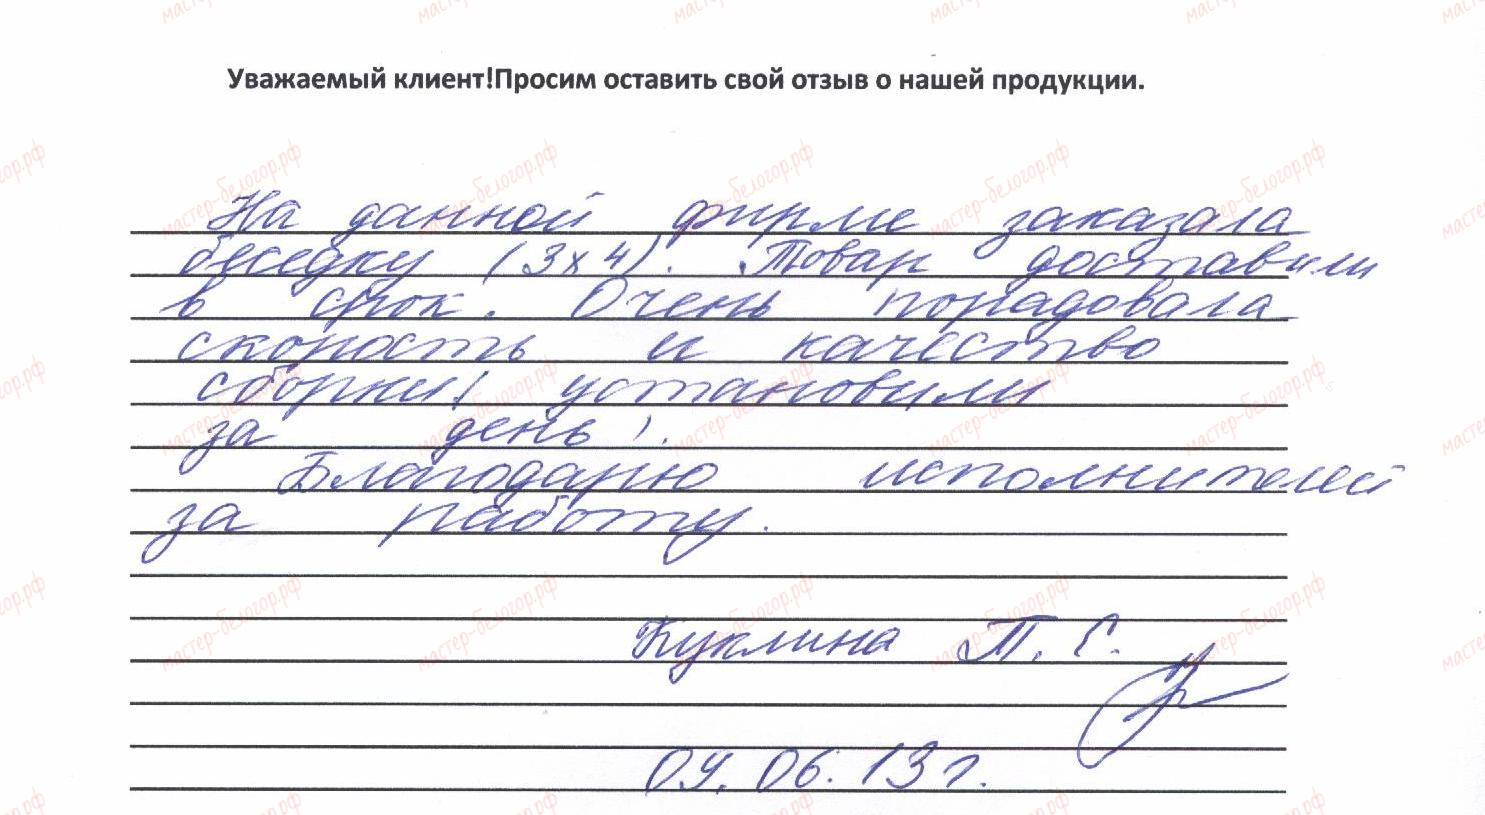 Уважаемый клиент!Просим оставить свой отзыв о нашей продукции.
На данной фирме заказала
беседку (3х4). Товар доставили
в срок. Очень порадовала
скорость и качество
сборки! установили
за день!.
Благодарю исполнителей
за работу.
Куклина Т. Е.
09. 06. 13 г.
мастер-белогор.рф